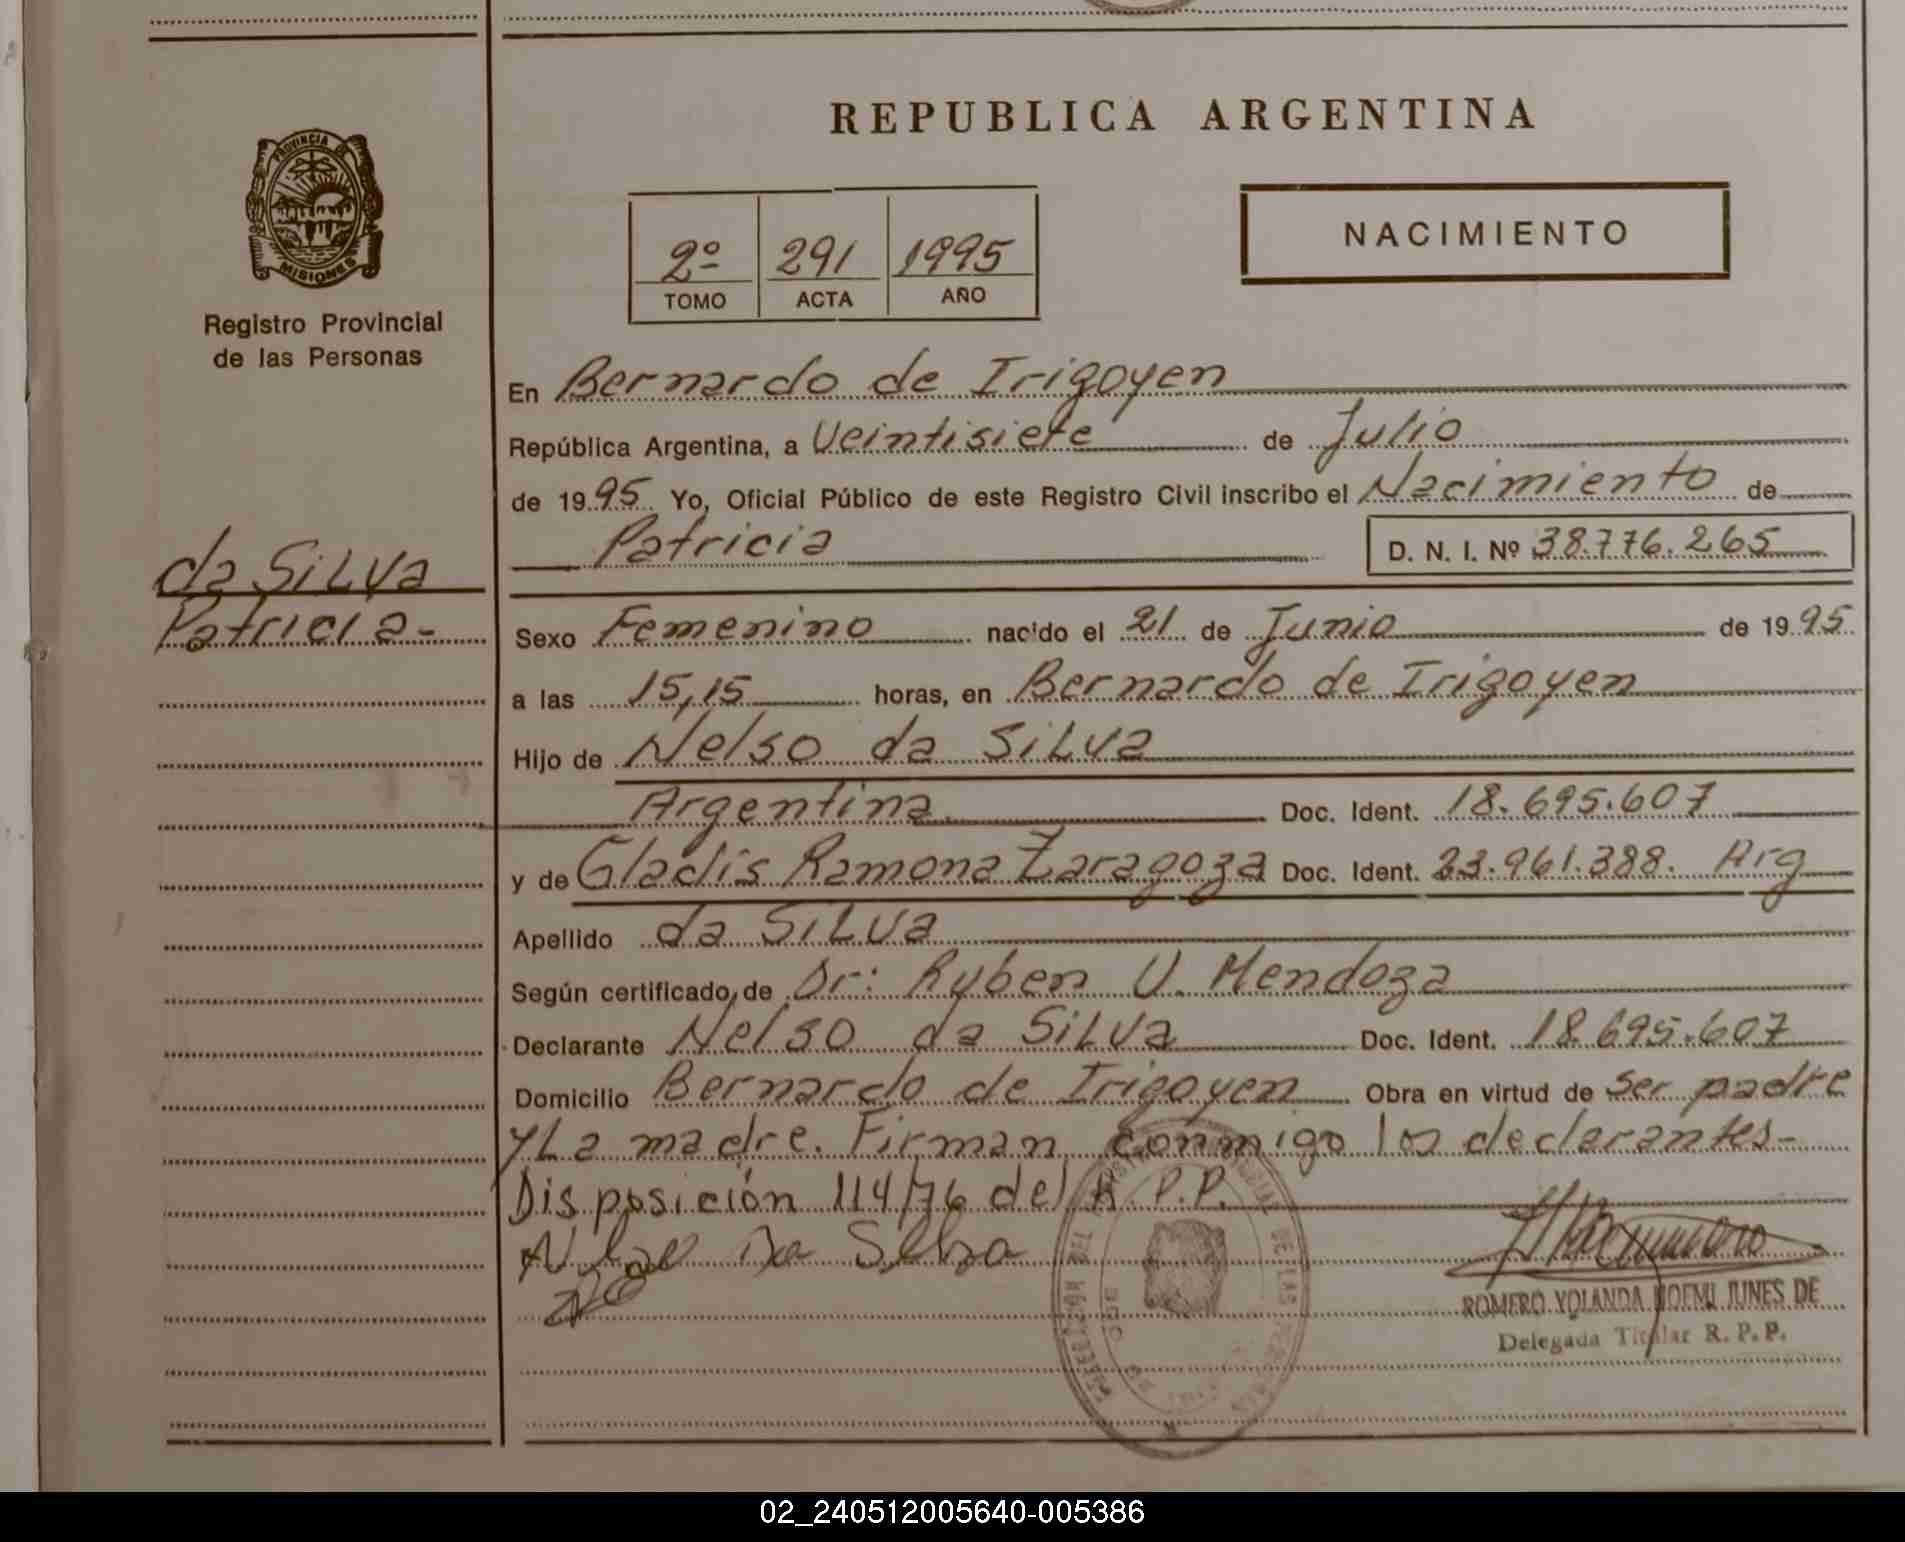 REPUBLICA ARGENTINA
PROVINCIA DE
MISIONES
Registro Provincial
de las Personas
2º 291 1995
TOMO ACTA AÑO
NACIMIENTO
da SiLVa
Patricia-
En Bernardo de Irigoyen
República Argentina, a Veintisiete de Julio
de 1995 Yo, Oficial Público de este Registro Civil inscribo el Nacimiento de
Patricia D. N. I. Nº 38.776.265
Sexo Femenino nacido el 21 de Junio de 1995
a las 15,15 horas, en Bernardo de Irigoyen
Hijo de Nelso da SiLVa
Argentina. Doc. Ident. 18.695.607
y de Gladis Ramona Zaragoza Doc. Ident. 23.961.388. Arg
Apellido da SiLVa
Según certificado de Dr: Ryben U. Mendoza
Declarante Nelso da SiLVa Doc. Ident. 18.695.607
Domicilio Bernardo de Irigoyen Obra en virtud de ser padre
y La madre. Firman conmigo los declarantes-
Disposición 114/76 del R.P.P.
ROMERO YOLANDA NOEMI JUNES DE
Delegada Titular R. P. P.
02_240512005640-005386